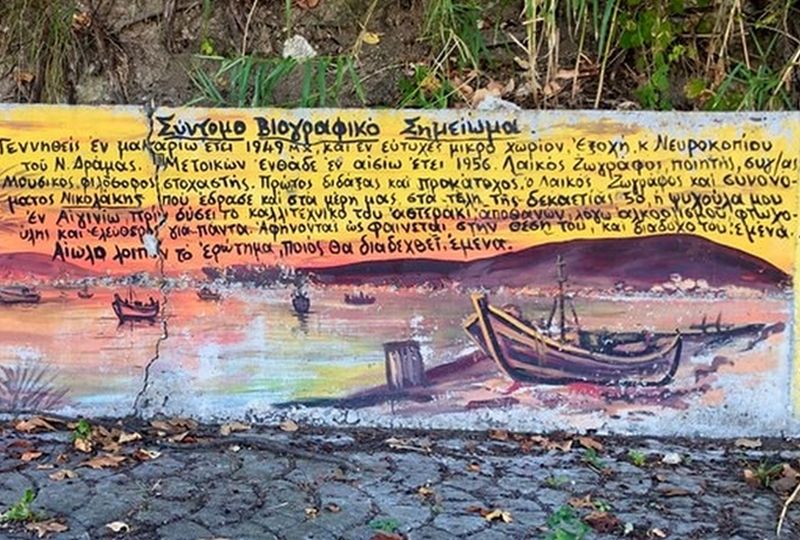 Σύντομο Βιογραφικό Σημείωμα.
Γεννηθείς ἐν μακαρίω ἔτει 1949 μχ καί ἐν εὐτυχές μικρό χωρίον, Ἐξοχή, κ Νευροκοπίου
τοῦ Ν. Δράμας. Μετοικῶν ἐνθάδε ἐν αἰσίω ἔτει 1956. Λαϊκός Ζωγράφος, ποιητής, συγ/ας
Μουσικός φιλόσοφος στοχαστής. Πρῶτος διδάξας καί προκάτοχος, ὁ Λαϊκός Ζωγράφος καί συνονό-
ματος Νικολάκης πού ἔδρασε καί στά μέρη μας, στά τέλη τῆς δεκαετίας 50, ἡ ψυχούλα μου
ἐν Αἰγινίω πρίν δύσει τό καλλιτεχνικό του ἀστεράκι, ἀποθανών λόγω ἀλκοολισμοῦ, φτωχο-
ύλης καί ἐλεύθερος γιά πάντα. Ἀφήνοντας ὡς φαίνεται στήν θέση του, καί διάδοχό του ἐμένα.
λοιπόν τό ἐρώτημα, ποιός θά διαδεχθεῖ ἐμένα.